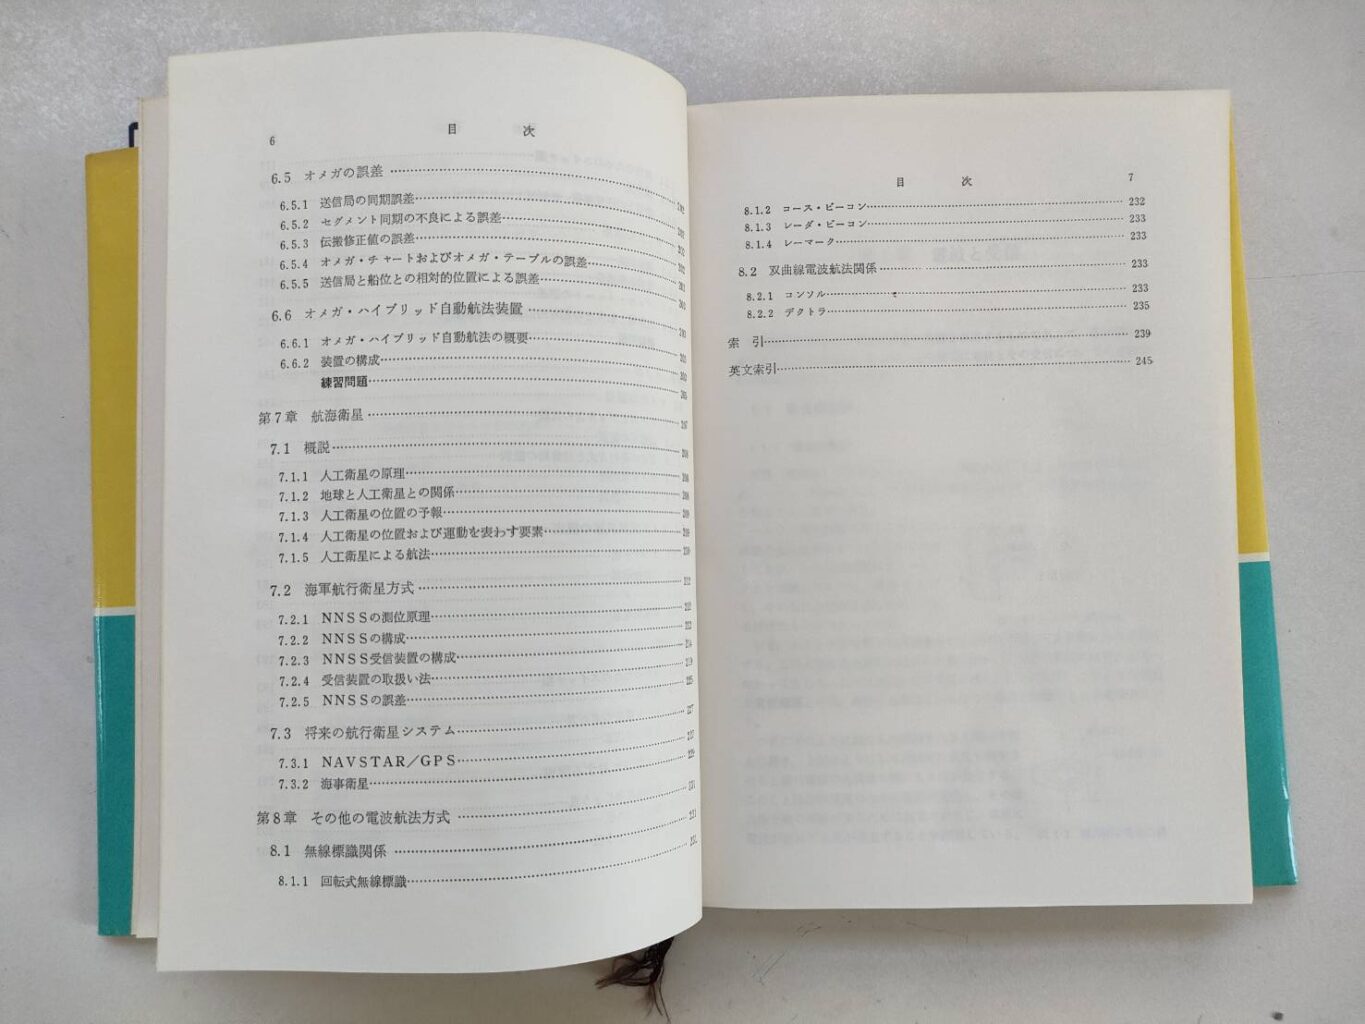 6 目次
6.5 オメガの誤差
6.5.1 送信局の同期誤差
6.5.2 セグメント同期の不良による誤差
6.5.3 伝搬修正値の誤差
6.5.4 オメガ・チャートおよびオメガ・テーブルの誤差
6.5.5 送信局と船位との相対的位置による誤差
6.6 オメガ・ハイブリッド自動航法装置
6.6.1 オメガ・ハイブリッド自動航法の概要
6.6.2 装置の構成
練習問題
第7章 航海衛星
7.1 概説
7.1.1 人工衛星の原理
7.1.2 地球と人工衛星との関係
7.1.3 人工衛星の位置の予報
7.1.4 人工衛星の位置および運動を表わす要素
7.1.5 人工衛星による航法
7.2 海軍航行衛星方式
7.2.1 NNSSの測位原理
7.2.2 NNSSの構成
7.2.3 NNSS受信装置の構成
7.2.4 受信装置の取扱い法
7.2.5 NNSSの誤差
7.3 将来の航行衛星システム
7.3.1 NAVSTAR/GPS
7.3.2 海事衛星
第8章 その他の電波航法方式
8.1 無線標識関係
8.1.1 回転式無線標識
目次 7
8.1.2 コース・ビーコン 232
8.1.3 レーダ・ビーコン 233
8.1.4 レーマーク 233
8.2 双曲線電波航法関係 233
8.2.1 コンソル 233
8.2.2 デクトラ 235
索引 239
英文索引 245